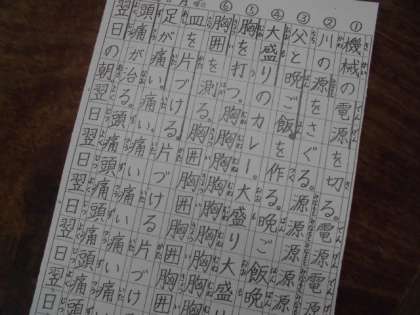 ①機械の電源を切る。電源電
②川の源をさぐる。源源源源
③父と晩ご飯を作る。晩ご飯晩
④大盛りのカレー。大盛り大盛り
⑤胸を打つ。胸胸胸胸胸
⑥胸囲を測る。胸囲胸囲胸囲
皿を片づける。片づける片づけ
足が痛い。痛い痛い痛い
頭痛が治る。頭痛頭痛頭痛
翌日の朝。翌日翌日翌日翌日